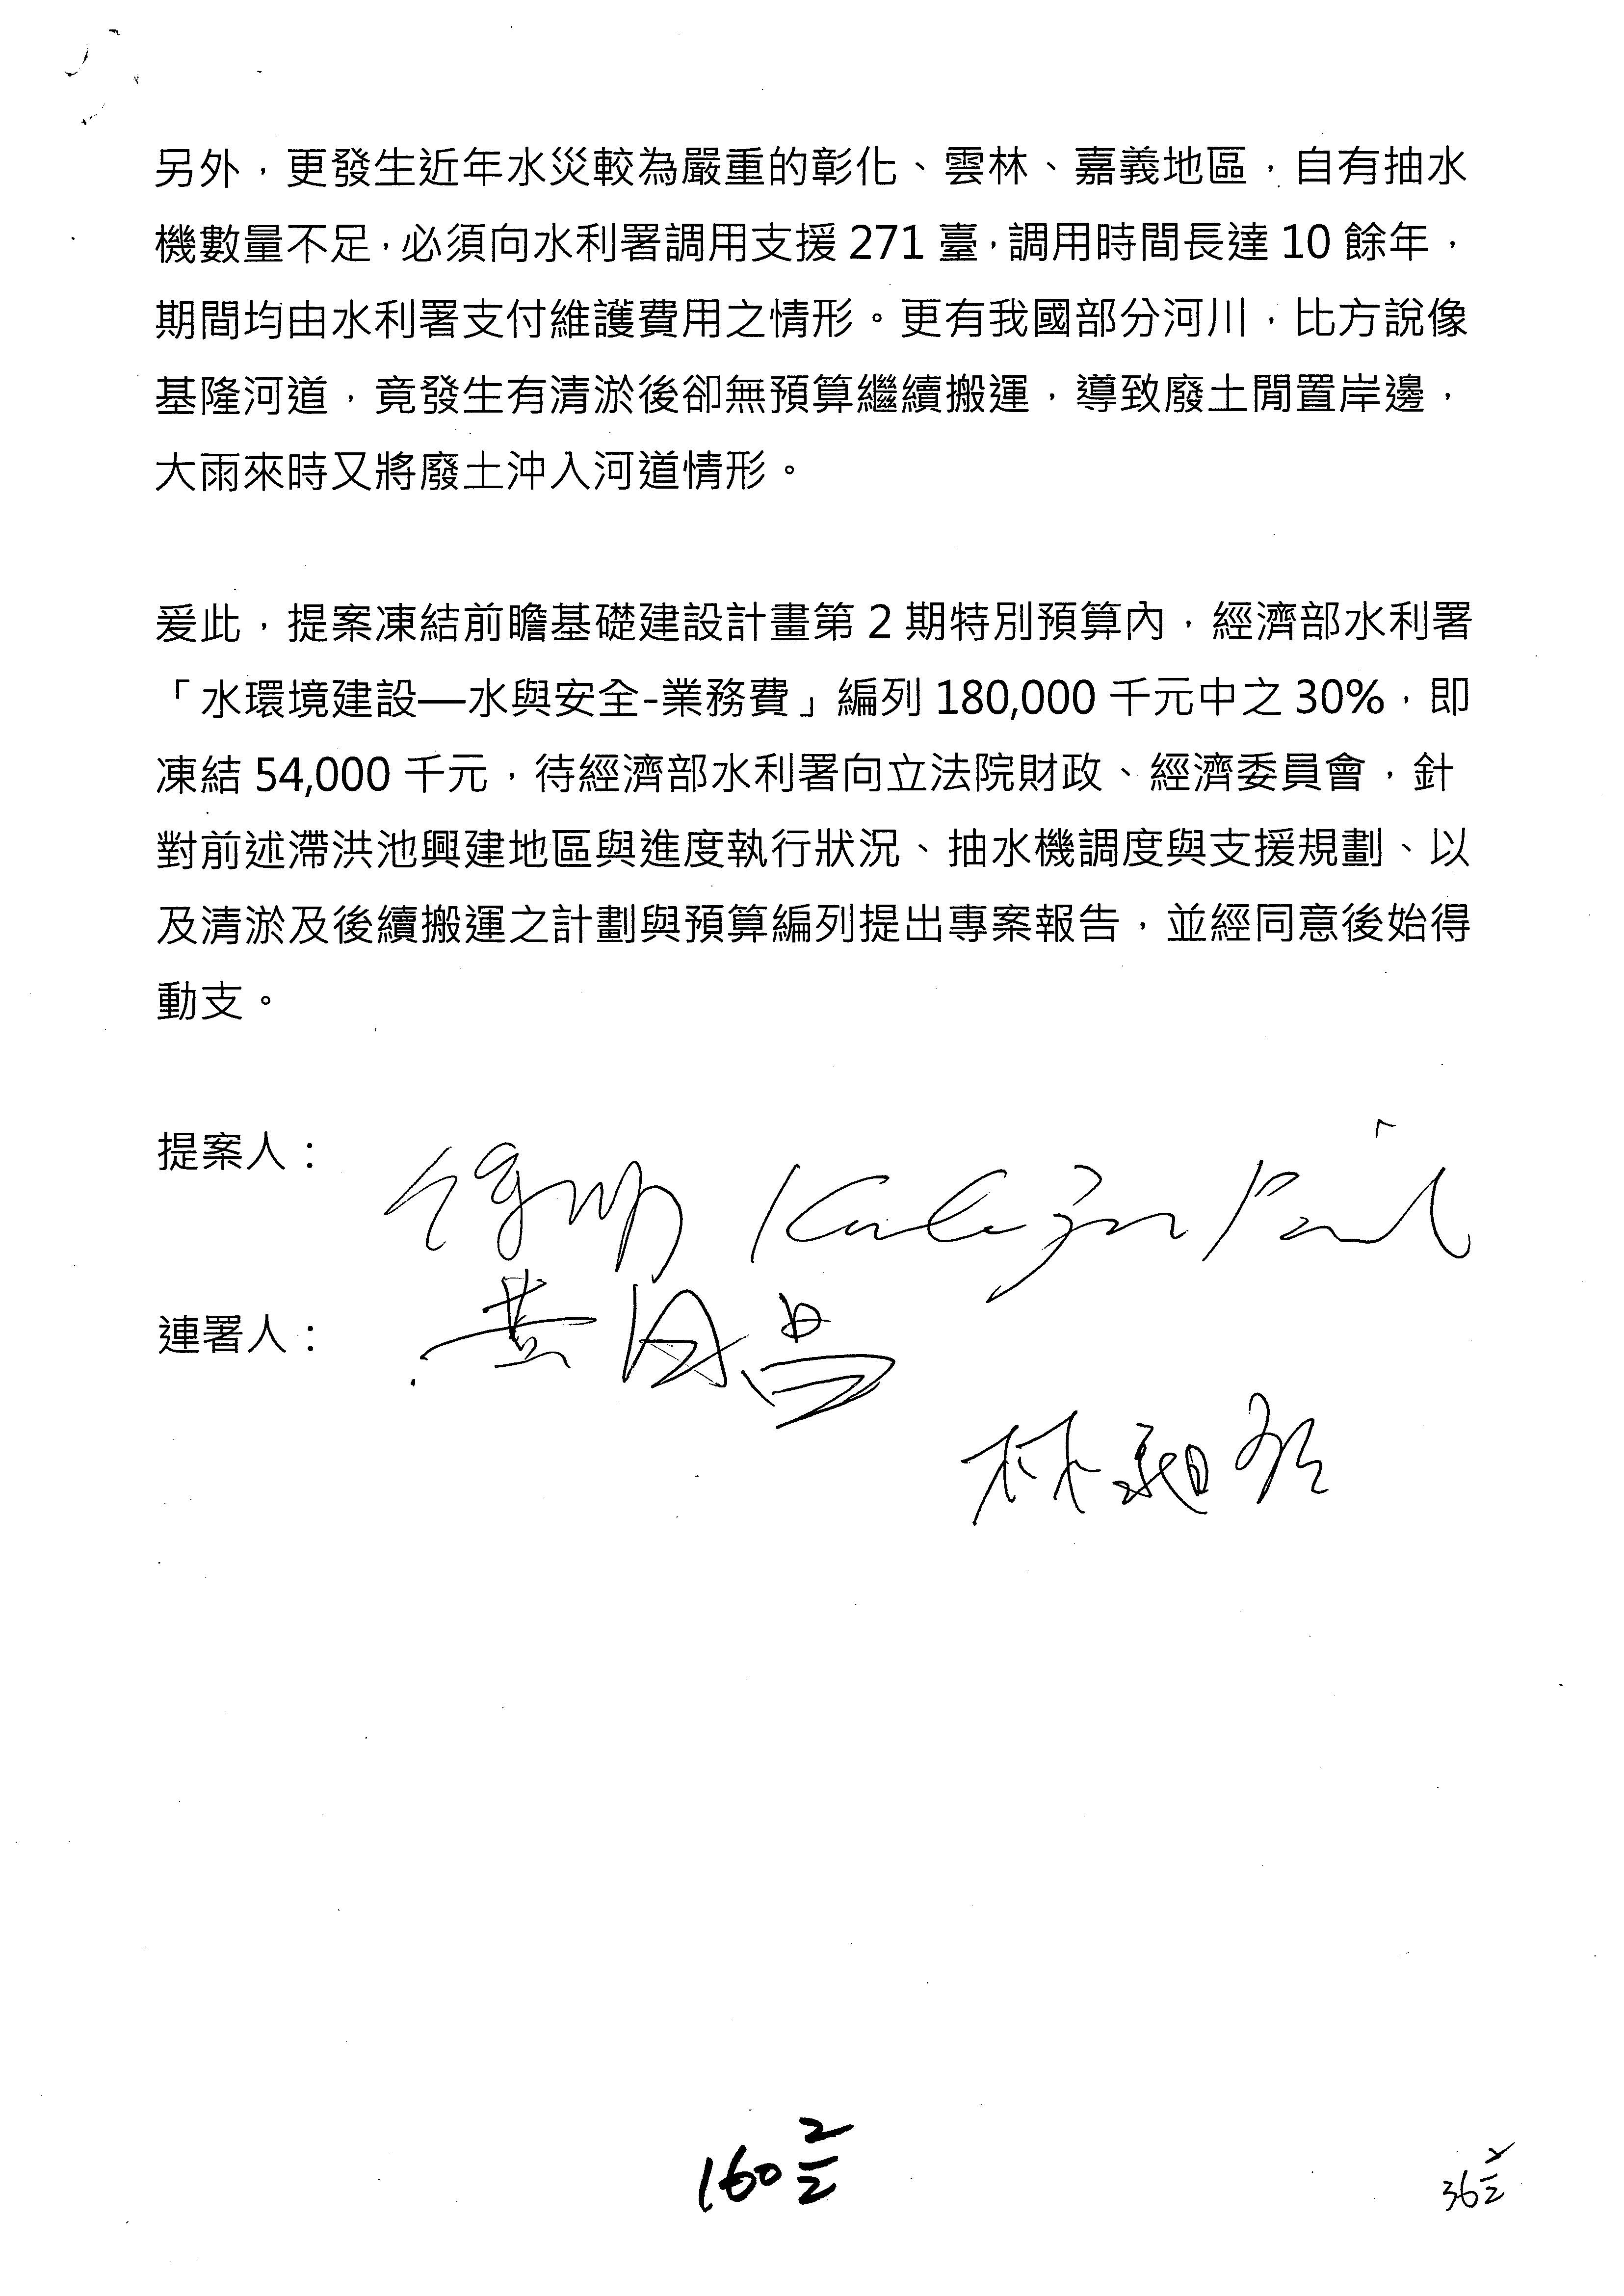 另外，更發生近年水災較為嚴重的彰化、雲林、嘉義地區，自有抽水
機數量不足，必須向水利署調用支援 271 臺，調用時間長達 10 餘年，
期間均由水利署支付維護費用之情形。更有我國部分河川，比方說像
基隆河道，竟發生有清淤後卻無預算繼續搬運，導致廢土閒置岸邊，
大雨來時又將廢土沖入河道情形。
爰此，提案凍結前瞻基礎建設計畫第 2 期特別預算內，經濟部水利署
「水環境建設—水與安全-業務費」編列 180,000 千元中之 30%，即
凍結 54,000 千元，待經濟部水利署向立法院財政、經濟委員會，針
對前述滯洪池興建地區與進度執行狀況、抽水機調度與支援規劃、以
及清淤及後續搬運之計劃與預算編列提出專案報告，並經同意後始得
動支。
提案人：
連署人：
黃國昌
林昶佐
160 2/2
36 2/2